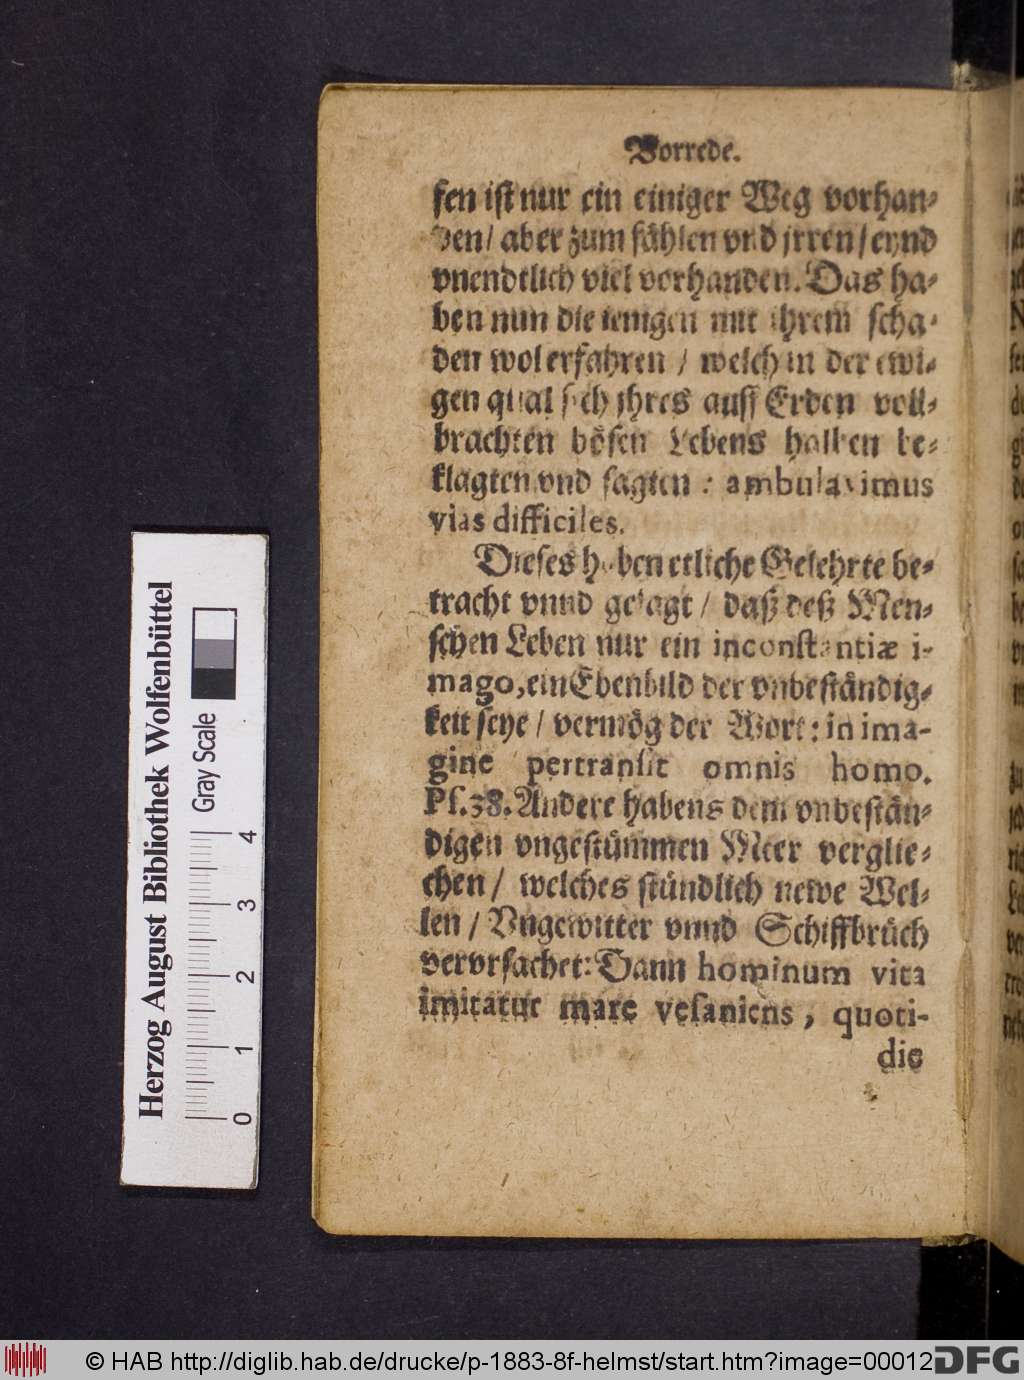 Vorrede.
fen ist nur ein einiger Weg vorhan-
den/ aber zum fählen vnd jrren/ eynd
vnendtlich viel vorhanden. Das ha-
ben nun die ienigen mit ihrem scha-
den wol erfahren / welch in der ewi-
gen qual sich ihres auff Erden voll-
brachten bösen Lebens halben be-
klagten vnd sagten : ambulavimus
vias difficiles.
Dieses haben etliche Gelehrte be-
tracht vnnd gesagt / daß deß Men-
schen Leben nur ein inconstantiæ i-
mago, ein Ebenbild der vnbeständig-
keit seye / vermög der Wort: in ima-
gine pertransit omnis homo.
Ps. 38. Andere habens dem vnbestän-
digen vngestümmen Meer verglie-
chen / welches stündlich newe Wel-
len / Vngewitter vnnd Schiffbrüch
vervrsachet: Dann hominum vita
imitatur mare vesaniens, quoti-
die
Herzog August Bibliothek Wolfenbüttel
Gray Scale
0 1 2 3 4
© HAB http://diglib.hab.de/drucke/p-1883-8f-helmst/start.htm?image=00012
DFG